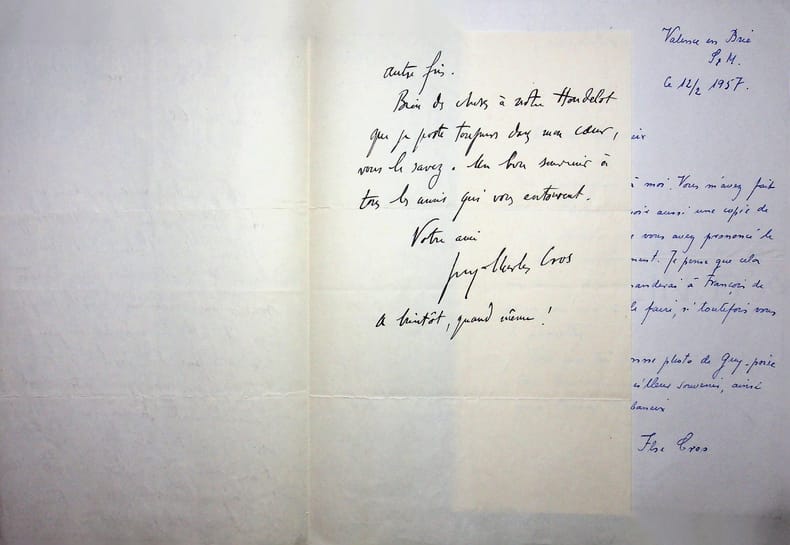 autre fois.
Bien des choses à notre Houdelot
que je porte toujours dans mon cœur,
vous le savez. Un bon souvenir à
tous les amis qui vous entourent.
Votre ami
Guy-Charles Cros
A bientôt, quand même !
Valence en Brie
S & M.
le 12/2 1957.
à moi. Vous m'avez fait
aussi une copie de
vous avez prononcé le
Je pense que cela
à François de
le faire, si toutefois vous
photo de Guy, prise
souvenir, ainsi
Ilse Cros